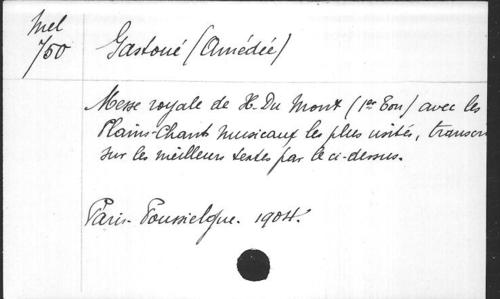 Mel
750
Gastoué (Amédée)
Messe royale de H. Du Mont (1er Ton) avec les
Plains-Chants musicaux les plus usités, transcr
sur les meilleurs textes par le ci-dessus.
Paris. Poussielgue. 1904.